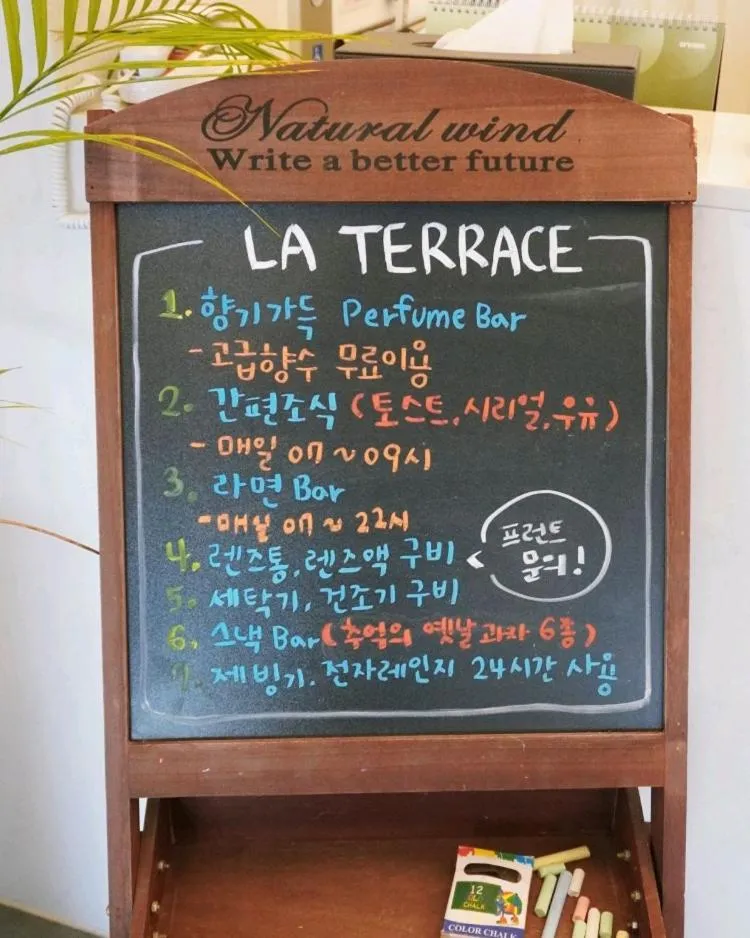 Natural wind
Write a better future
LA TERRACE
1. 향기가득 Perfume Bar
- 고급향수 무료이용
2. 간편조식 (토스트, 시리얼, 우유)
- 매일 07 ~ 09시
3. 라면 Bar
- 매일 07 ~ 22시
4. 렌즈통, 렌즈액 구비
프런트
문의!
5. 세탁기, 건조기 구비
6. 스낵 Bar (추억의 옛날과자 6종)
7. 제빙기. 전자레인지 24시간 사용
12
CHALK
COLOR CHALK